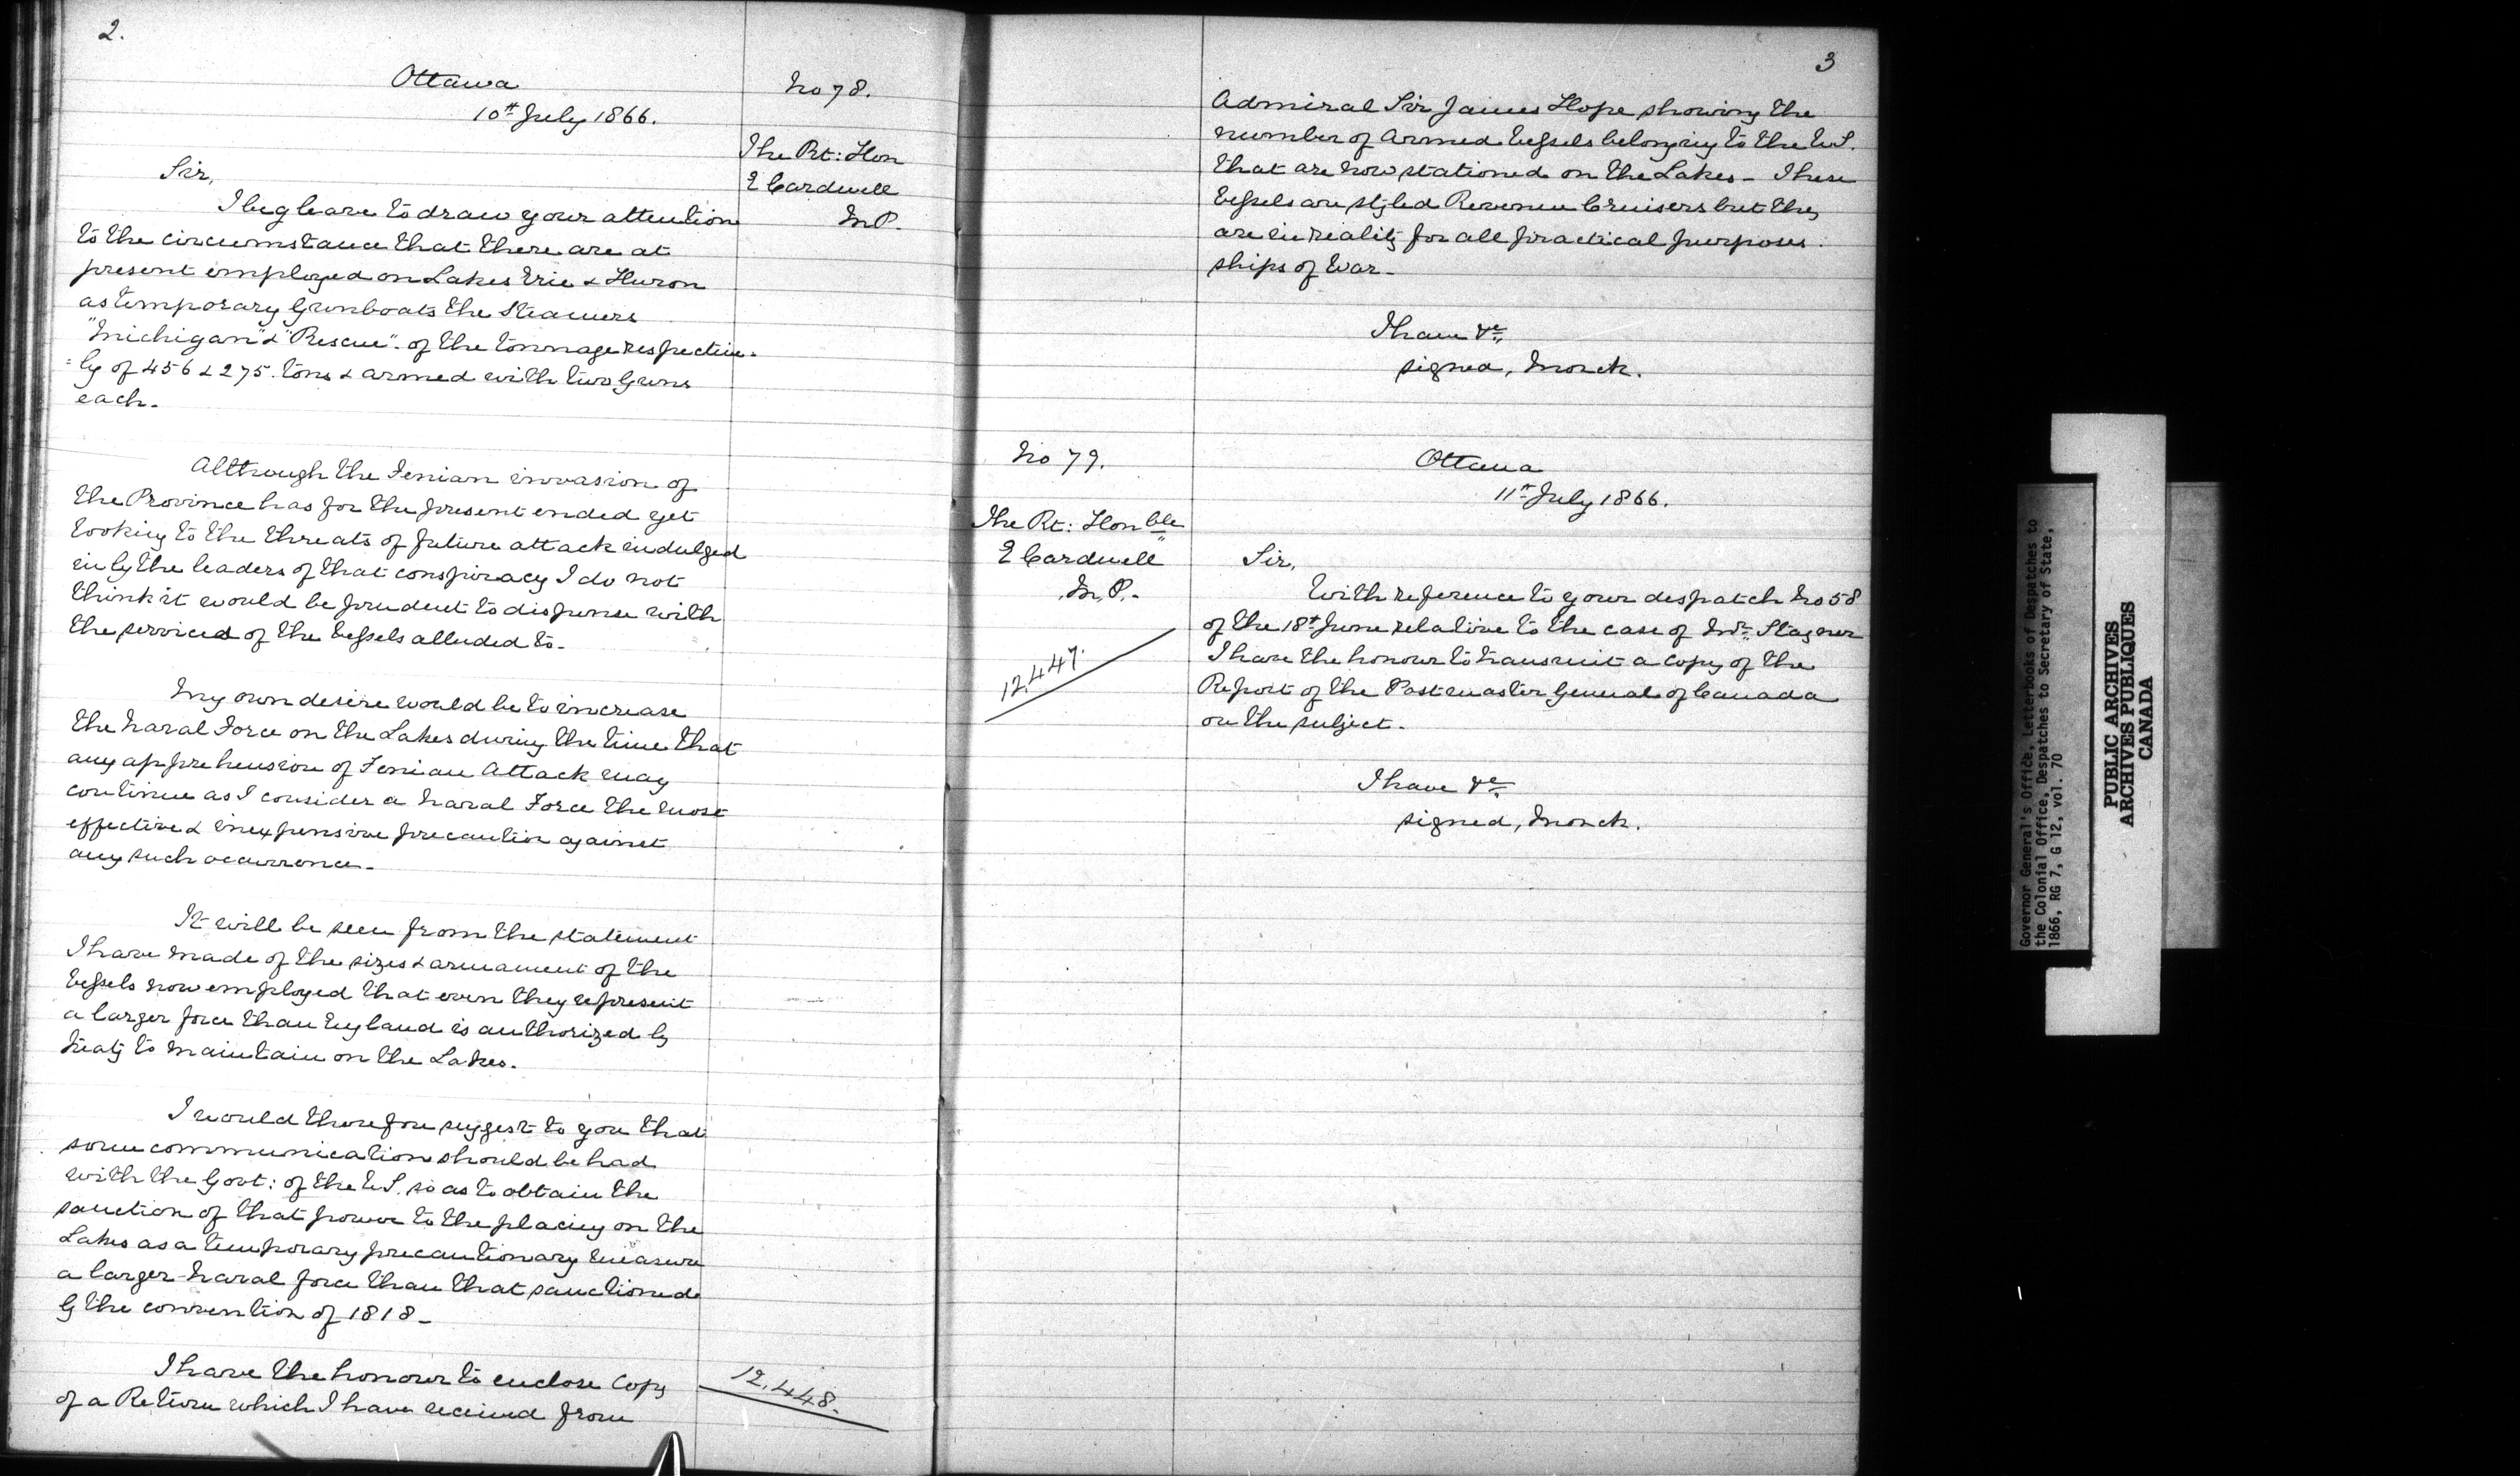 2.
Ottawa
10th July 1866.
No 78.
The Rt: Hon
E Cardwell
M.P.
Sir,
I beg leave to draw your attention
to the circumstance that there are at
present employed on Lakes Erie & Huron
as temporary Gunboats the Steamers
"Michigan" & "Rescue" of the tonnage respective-
=ly of 456 & 275 tons & armed with two Guns
each.
Although the Fenian invasion of
the Province has for the present ended yet
looking to the threats of future attack indulged
in by the leaders of that conspiracy I do not
think it would be prudent to dispense with
the services of the Vessels alluded to.
My own desire would be to increase
the Naval Force on the Lakes during the time that
any apprehension of Fenian Attack may
continue as I consider a Naval Force the most
effective & inexpensive precaution against
any such occurrence.
It will be seen from the statement
I have made of the sizes & armament of the
Vessels now employed that even they represent
a larger force than England is authorized by
treaty to maintain on the Lakes.
I would therefore suggest to you that
some communication should be had
with the Govt: of the U.S. so as to obtain the
sanction of that power to the placing on the
Lakes as a temporary precautionary measure
a larger Naval force than that sanctioned
by the convention of 1818_
I have the honour to enclose Copy
of a Return which I have received from
12.448.
3
Admiral Sir James Hope showing the
number of Armed Vessels belonging to the U.S.
that are now stationed on the Lakes_ These
Vessels are styled Revenue Cruisers but they
are in reality for all practical purposes
ships of War_
I have &c
signed, Monck.
No 79.
The Rt: Honble
E Cardwell
M.P.
12.447.
Ottawa
11th July 1866.
Sir,
With reference to your despatch No 58
of the 18th June relative to the case of Mr. Stagner
I have the honour to transmit a copy of the
Report of the Postmaster General of Canada
on the subject.
I have &c
signed, Monck.
Governor General's Office, Letterbooks of Despatches to
the Colonial Office, Despatches to Secretary of State,
1866, RG 7, G 12, vol. 70
PUBLIC ARCHIVES
ARCHIVES PUBLIQUES
CANADA